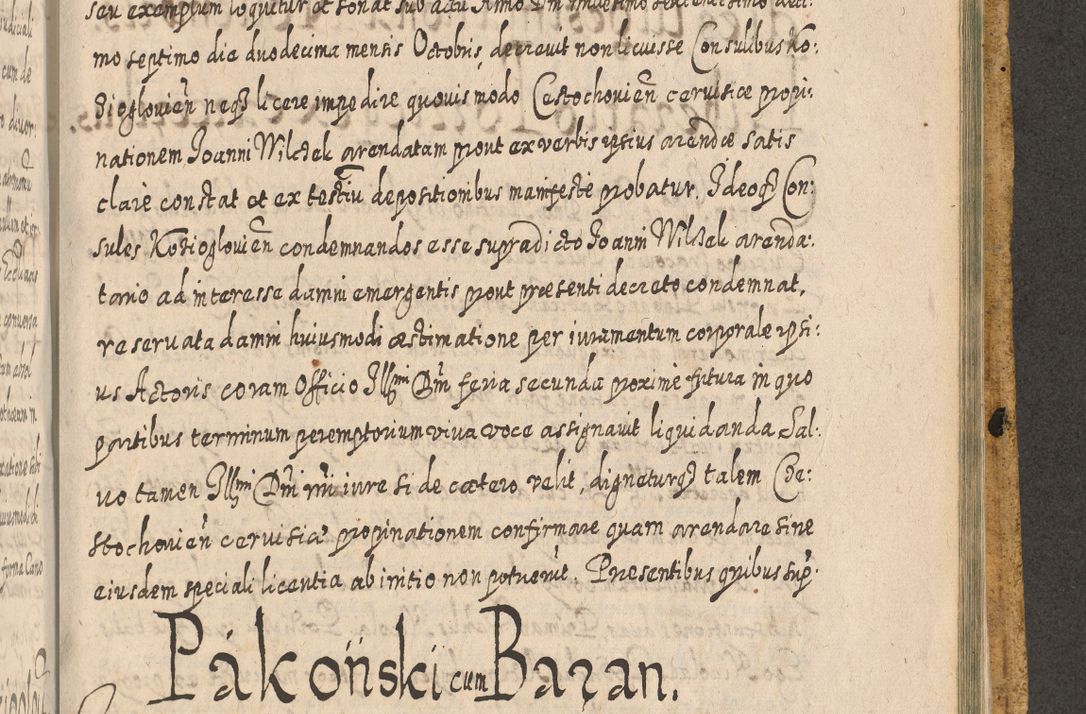 seu exemplum loquitur et sonat sub actu Anno Dni millesimo sexcentesimo deci:
mo septimo die duodecima mensis Octobris, decrevit non licuisse Consulibus Ko:
zioglovien neqꝫ licere impedire quovis modo Cęstochovien cervisice propi:
nationem Joanni Wilczek arendatam prout ex verbis ipsius arendæ satis
clare constat et ex testiu depositionibus manifeste probatur. Ideoqꝫ Con:
sules Kozioglovien condemnandos esse supradicto Joanni Wilczek arenda:
tario ad interesse damni emergentis prout præsenti decreto condemnat,
reservata damni huiusmodi æstimatione per iuramentum corporale ipsi:
us Actoris coram Officio Illmi Dni feria secunda proxime futura in quo
partibus terminum peremptorium viva voce assignavit liquidanda Sal:
vo tamen Illmi Dni mri iure si de cætero velit, dignaturqꝫ talem Czę:
stochovien cervisiæ propinationem confirmare quam arendare sine
eiusdem speciali licentia ab initio non potverit. Præsentibus quibus sup
Pákoński cum Bażan.